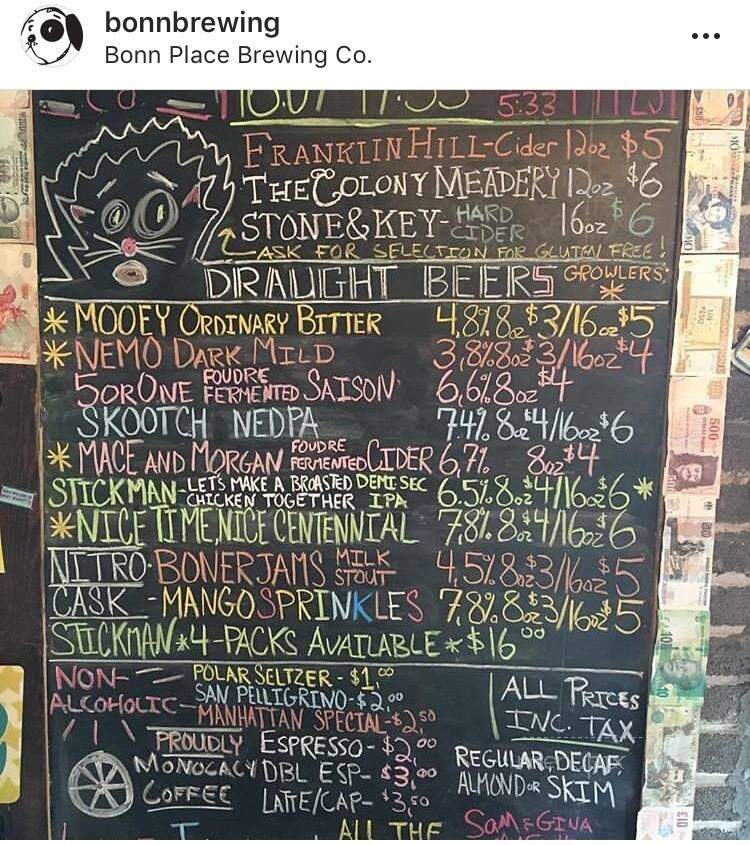 bonnbrewing
Bonn Place Brewing Co.
5:33
FRANKLIN HILL-Cider 12oz $5
THE COLONY MEADERY 12oz $6
STONE&KEY-HARD CIDER 16oz $6
ASK FOR SELECTION FOR GLUTEN FREE!
DRAUGHT BEERS GROWLERS *
* MOOEY ORDINARY BITTER 4,8% 8oz $3/16oz $5
* NEMO DARK MILD 3,8% 8oz $3/16oz $4
5 OR ONE FOUDRE FERMENTED SAISON 6,6% 8oz $4
SKOOTCH NEDPA 7.4% 8oz $4/16oz $6
* MACE AND MORGAN FOUDRE FERMENTED CIDER 6,7% 8oz $4
STICKMAN-LET'S MAKE A BROASTED CHICKEN TOGETHER DEMI SEC IPA 6.5% 8oz $4/16oz $6 *
* NICE TIME, NICE CENTENNIAL 7,8% 8oz $4/16oz $6
NITRO-BONERJAMS MILK STOUT 4,5% 8oz $3/16oz $5
CASK-MANGO SPRINKLES 7.8% 8oz $3/16oz $5
STICKMAN * 4-PACKS AVAILABLE * $16.00
NON-ALCOHOLIC
POLAR SELTZER - $1.00
SAN PELLIGRINO-$2.00
MANHATTAN SPECIAL-$2.50
ALL PRICES
INC. TAX
PROUDLY
MONOCACY
COFFEE
ESPRESSO-$2.00
DBL ESP-$3.00
LATTE/CAP-$3.50
REGULAR, DECAF,
ALMOND OR SKIM
ALL THE SAM & GINA